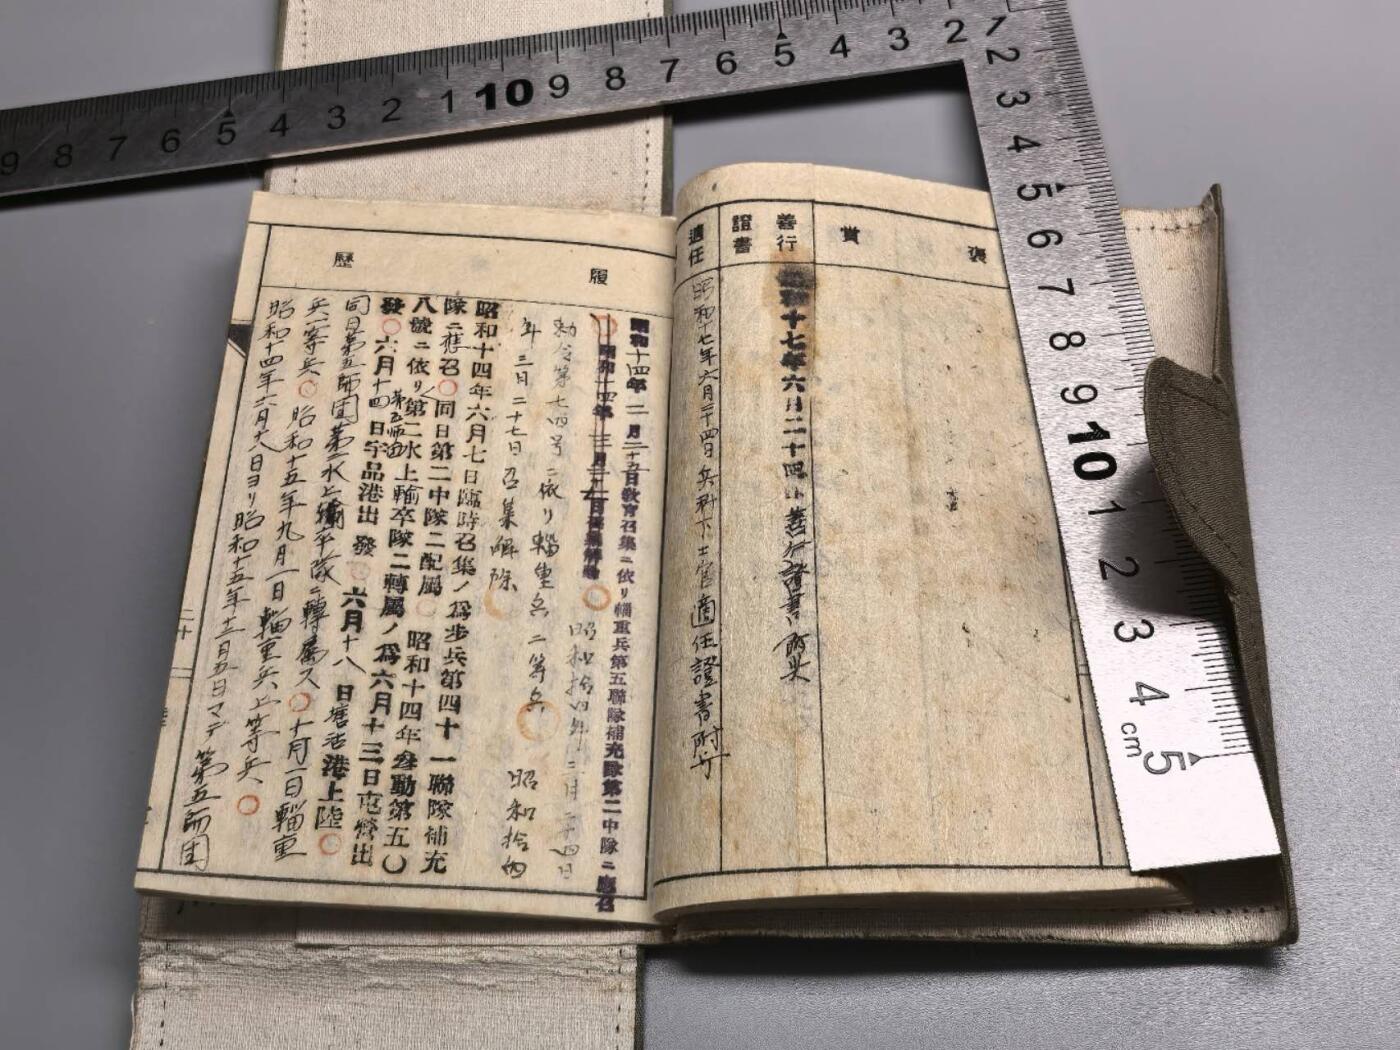 褒賞
善行證書
適任
昭和十七年六月二十四日善行證書附与
昭和十七年六月二十四日兵科下士官適任證書附与
履歷
昭和十四年二月二十五日教育召集ニ依リ輜重兵第五聯隊補充隊第二中隊ニ應召
昭和十四年三月二十一日召集解除
昭和拾四年三月二十四日
勅令第七四号ニ依リ輜重兵二等兵
昭和拾四
年三月二十七日召集解除
昭和十四年六月七日臨時召集ノ爲步兵第四十一聯隊補充
隊ニ應召 同日第二中隊ニ配屬 昭和十四年動第五〇
八號ニ依リ第二水上輸卒隊ニ轉屬ノ爲六月十三日屯營出
第五師団
發 六月十四日宇品港出發 六月十八日塘沽港上陸
同日第五師團第二水上輸卒隊ニ轉屬ス 十月一日輜重
兵一等兵 昭和十五年九月一日輜重兵上等兵
昭和十四年六月十八日ヨリ昭和十五年十二月五日マデ第五師團
二十
9 8 7 6 5 4 3 2 1 10 9 8 7 6 5 4 3 2 1
2 3 4 5 6 7 8 9 10 1 2 3 4 5
cm